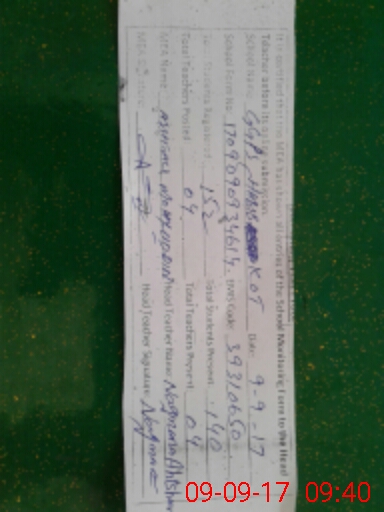 It is certified that the MEA has shown all entries of the School Monitoring Form to the Head
Teacher before its final submission.
School Name: GGPS KOT Date: 9-9-17
School Form No: 1709090934614 EMIS Code: 39310650
Total Students Registered: 152 Total Students Present: 140
Total Teachers Posted: 04 Total Teachers Present: 04
MEA Name: Head Teacher Name: Nagmana
MEA Signature: Head Teacher Signature: Nagmana
09-09-17 09:40